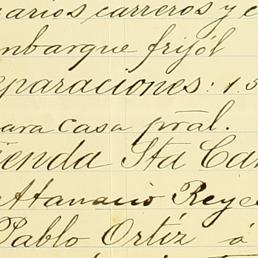 arios carreros y c
mbarque frijól
eparaciones: 15
para casa pral.
ienda Sta Ca
Attanacio Reye
Pablo Ortíz á